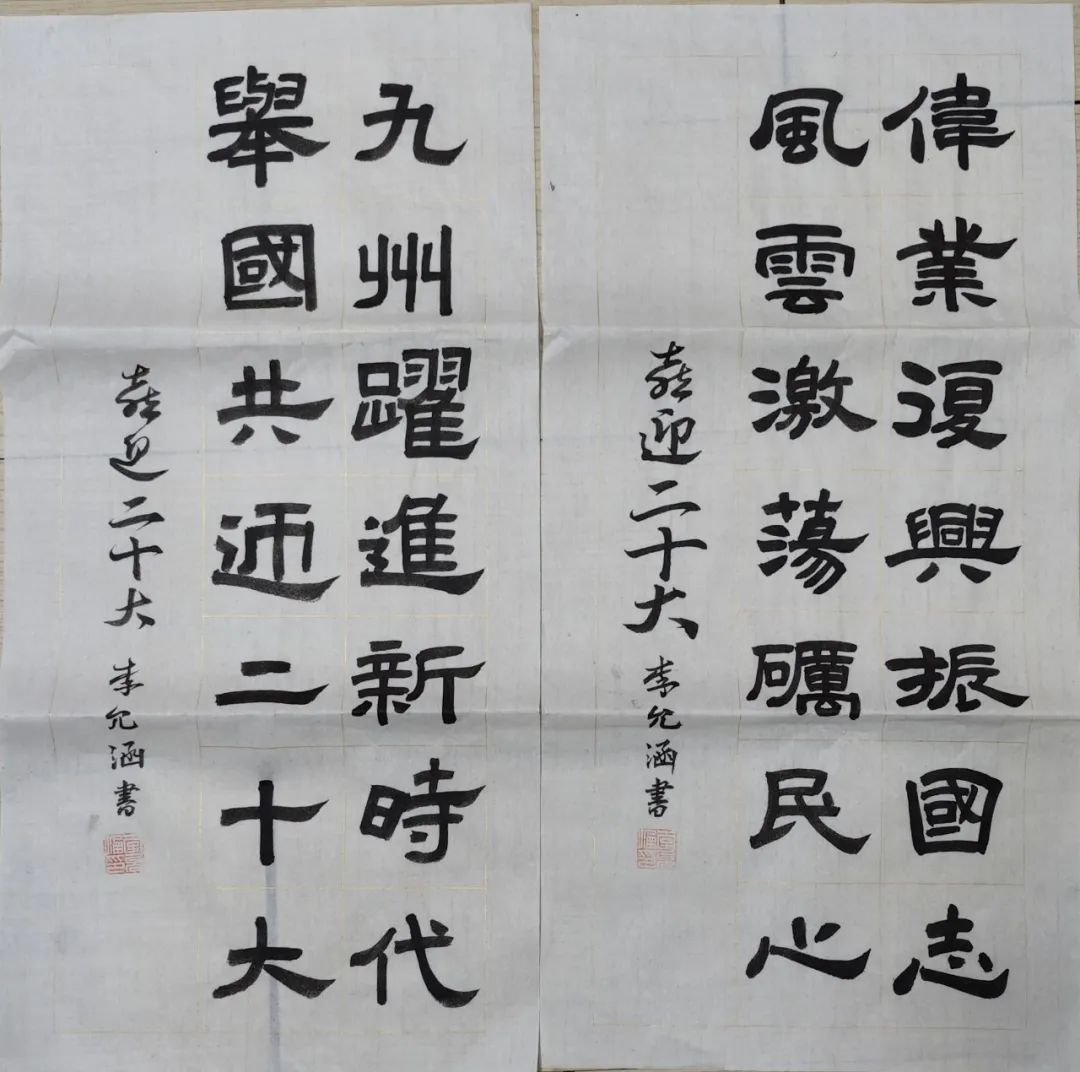 偉業復興振國志
風雲激蕩礪民心
喜迎二十大 李允涵書
九州躍進新時代
舉國共迎二十大
喜迎二十大 李允涵書